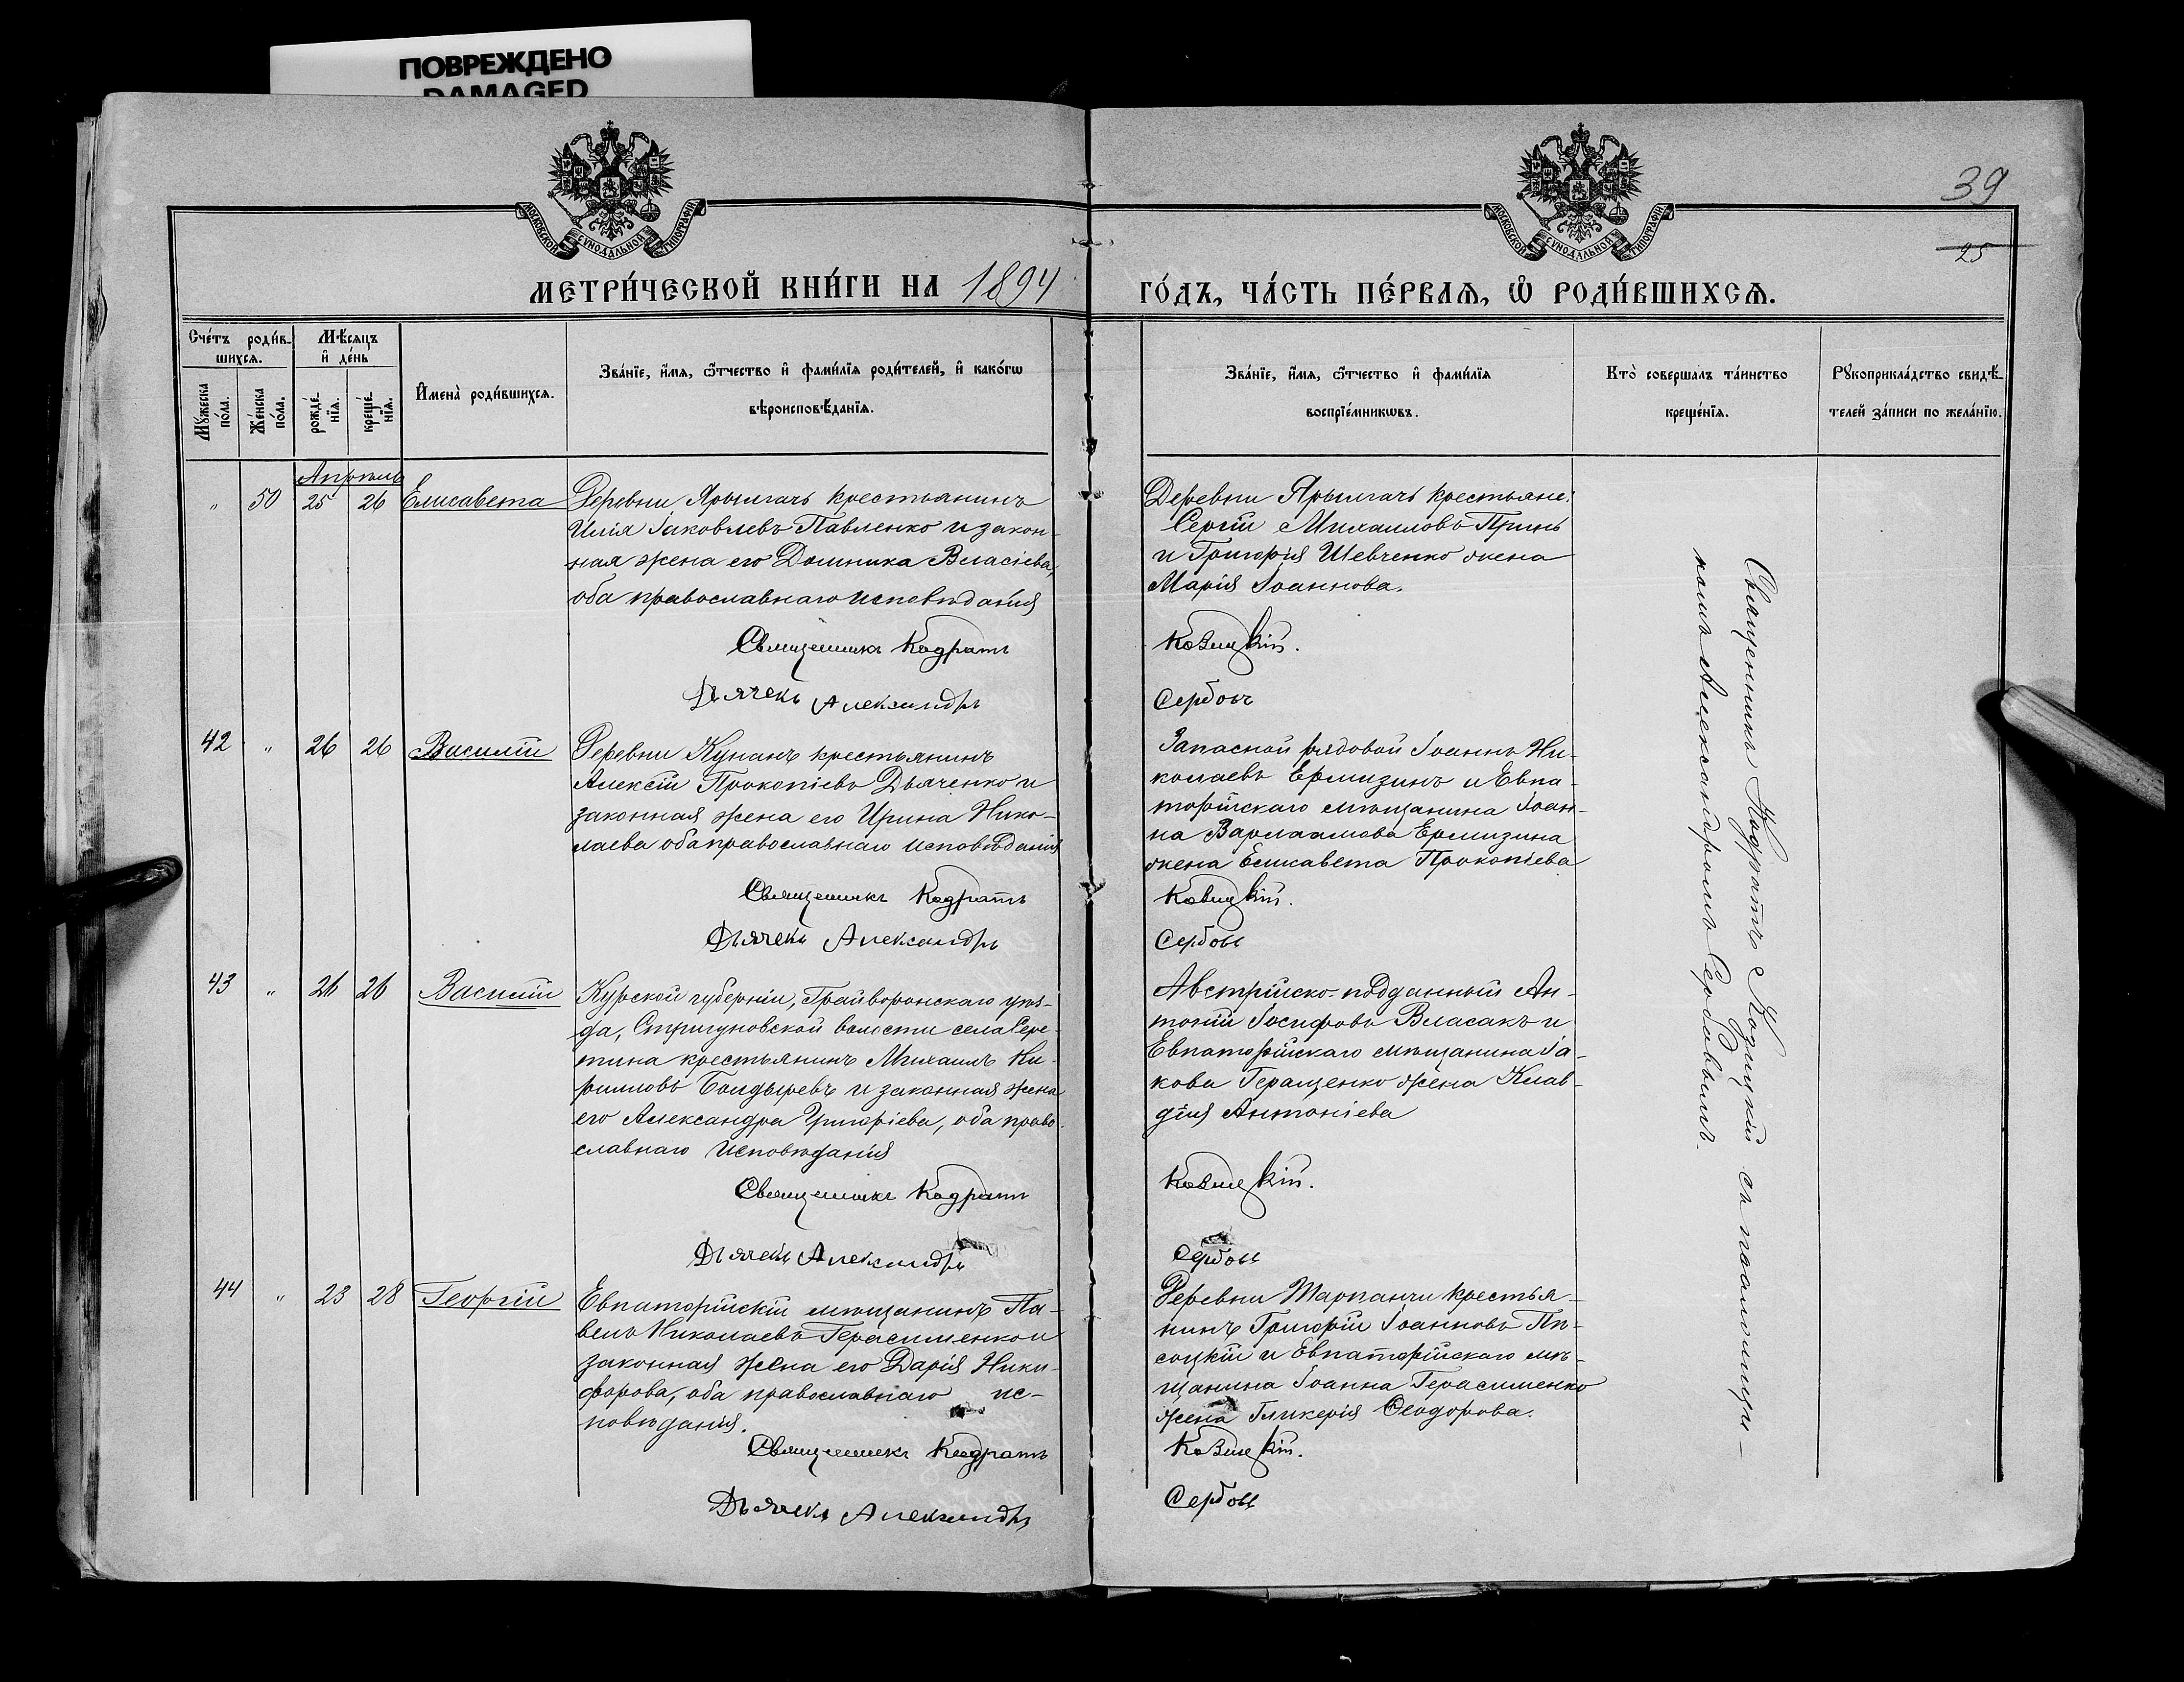 ПОВРЕЖДЕНО
DAMAGED
МОСКОВСКОЙ СѴНОДАЛЬНОЙ ТИПОГРАФІИ
МОСКОВСКОЙ СѴНОДАЛЬНОЙ ТИПОГРАФІИ
39
25
МЕТРИ́ЧЕСКОЙ КНИ́ГИ НА 1894
ГО́ДЪ, ЧА́СТЬ ПЕ́РВАѦ, Ѡ҆ РОДИ́ВШИХСѦ.
Сче́тъ роди́в-
шихсѧ.
Мꙋ́жеска по́ла.
Же́нска по́ла.
Мѣ́сѧцъ
и҆ де́нь
рожде́-
нїѧ.
креще́-
нїѧ.
И҆мена̀ роди́вшихсѧ.
Зва́нїе, и҆́мѧ, ѻ҆́тчество и҆ фами́лїѧ роди́телей, и҆ како́гѡ
вѣроисповѣ́данїѧ.
Зва́нїе, и҆́мѧ, ѻ҆́тчество и҆ фами́лїѧ
воспрїе́мникѡвъ.
Кто̀ соверша́лъ та́инство
креще́нїѧ.
Рꙋкоприкла́дство свидѣ́-
телей за́писи по жела́нїю.
Апрѣль
" 50 25 26 Елисавета
Деревни Ярылгачъ крестьянинъ
Илія Іаковлевъ Павленко и закон-
ная жена его Домника Власіева,
оба православнаго исповѣданія
Священникъ Кодратъ
Дьячекъ Александръ
Деревни Ярылгачъ крестьяне:
Сергій Михаиловъ Принь
и Григорія Шевченко жена
Марія Іоаннова.
Козицкій.
Сербовъ
42 " 26 26 Василій
Деревни Кунанъ крестьянинъ
Алексій Прокопіевъ Дьяченко и
законная жена его Ирина Нико-
лаева оба православнаго исповѣданія
Священникъ Кодратъ
Дьячекъ Александръ
Запасной рядовой Іоаннъ Ни-
колаевъ Ермизинъ и Евпа-
торійскаго мѣщанина Іоан-
на Варлаамова Ермизина
жена Елисавета Прокопіева
Козицкій.
Сербовъ
43 " 26 26 Василій
Курской губерніи, Грайворонскаго уѣз-
да, Стригуновской волости села Сере-
тина крестьянинъ Михаилъ Ки-
рилловъ Болдыревъ и законная жена
его Александра Григоріева, оба право-
славнаго исповѣданія
Священникъ Кодратъ
Дьячекъ Александръ
Австрійско-подданный Ан-
тоній Іосифовъ Власакъ и
Евпаторійскаго мѣщанина Іа-
кова Геращенко жена Клав-
дія Антоніева
Козицкій.
Сербовъ
44 " 23 28 Георгій
Евпаторійскій мѣщанинъ Па-
велъ Николаевъ Герасименко и
законная жена его Дарія Ники-
форова, оба православнаго ис-
повѣданія.
Священникъ Кодратъ
Дьячекъ Александръ
Деревни Тарпанчи крестья-
нинъ Григорій Іоанновъ Пи-
соцкій и Евпаторійскаго мѣ-
щанина Іоанна Герасименко
жена Гликерія Ѳеодорова.
Козицкій.
Сербовъ
Священникъ Кодратъ Козицкій съ псаломщи-
комъ Александромъ Сербовымъ.